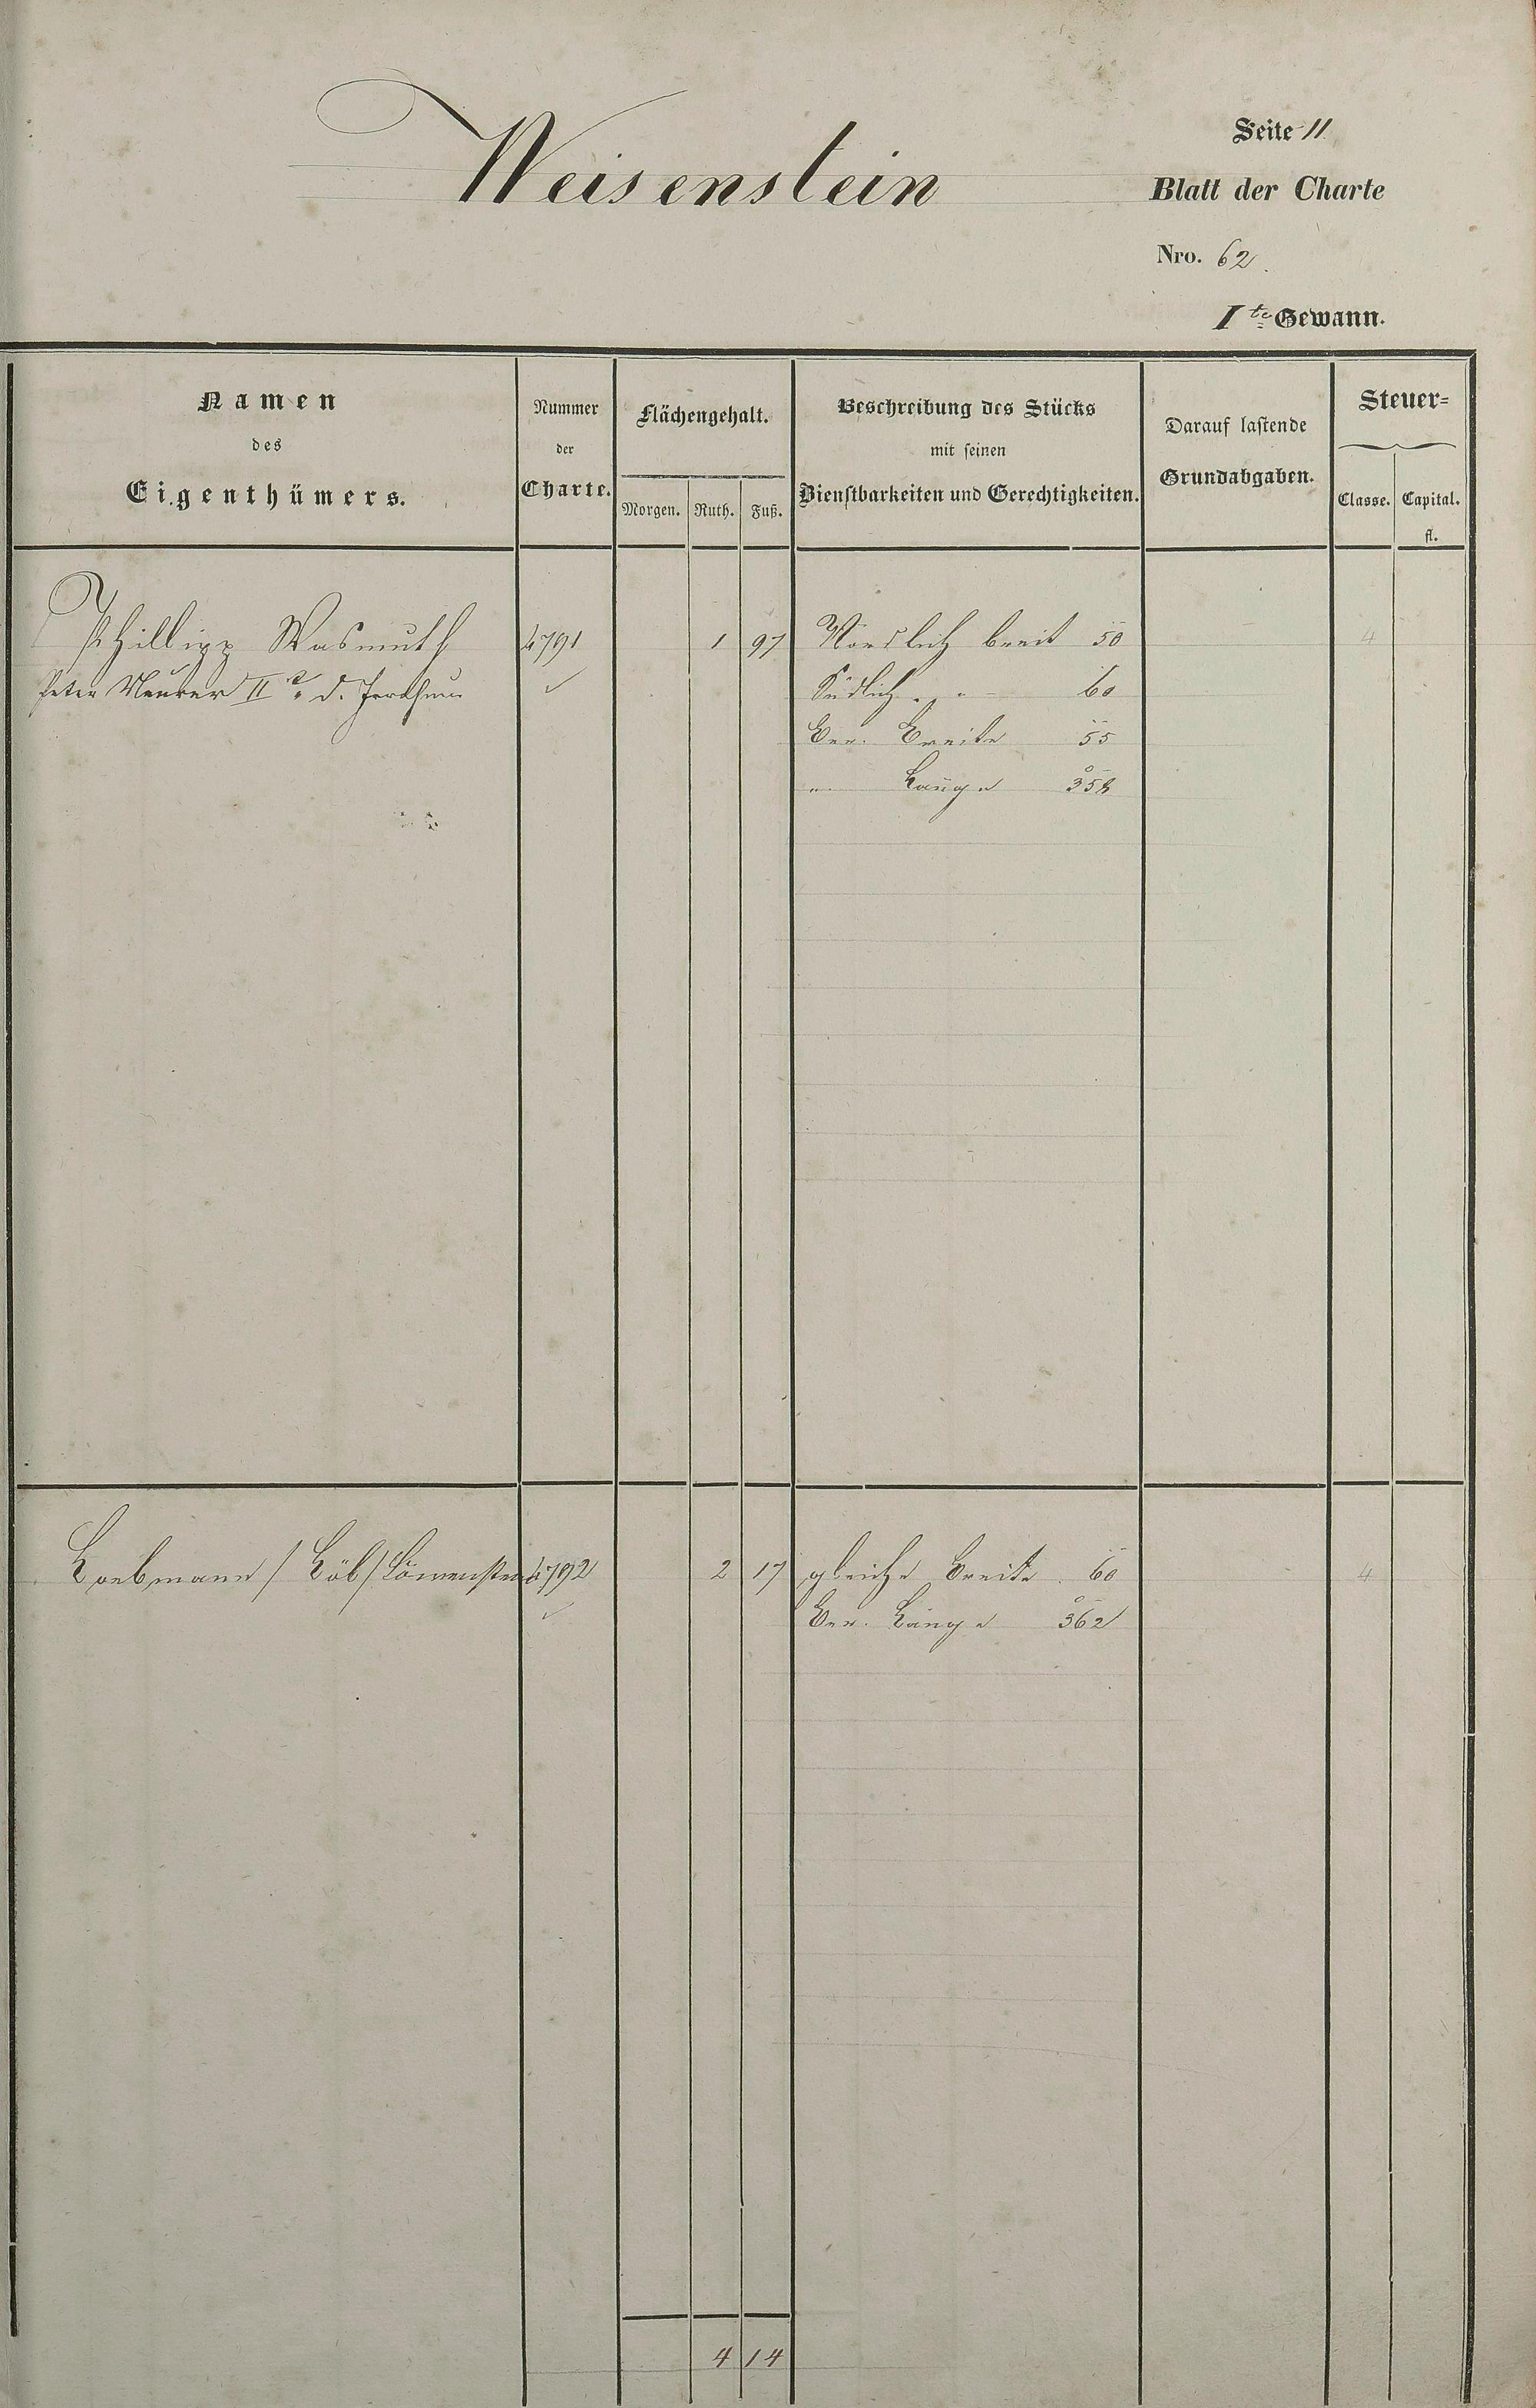 Weisenstein
Seite 11
Blatt der Charte
Nro. 62.
I te Gewann.
Namen
des
Eigenthümers.
Nummer
der
Charte.
Flächengehalt.
Morgen. Ruth. Fuß.
Beschreibung des Stücks
mit seinen
Dienstbarkeiten und Gerechtigkeiten.
Darauf lastende
Grundabgaben.
Steuer=
Classe. Capital.
fl.
Phillipp Wasmuth 4791 1 97 Nordlich breit 50 4
Peter Neurer II Südlich 60
Ber. Breite 55
" Länge 358
Loebmann / Löb / Löwenstein 4792 2 17 gleiche Breite 60 4
Ber. Länge 362
4 14